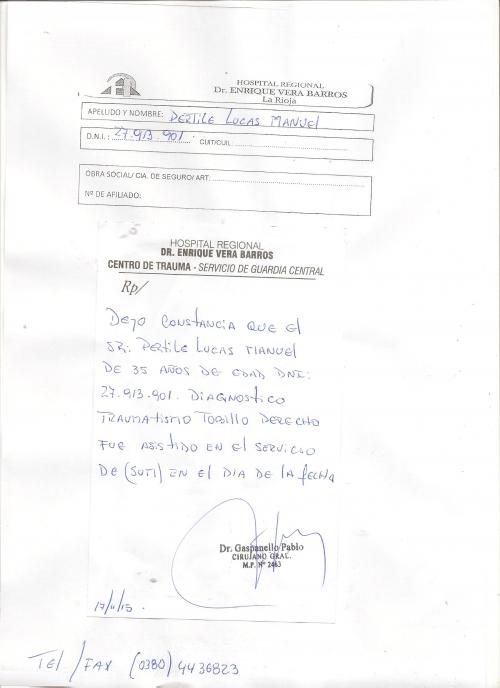 HOSPITAL REGIONAL
Dr. ENRIQUE VERA BARROS
La Rioja
APELUDO Y NOMBRE: PERTILE LUCAS MANUEL
D.N.I.: 27.913.901 CUIT/CUIL
OBRA SOCIAL/ CIA. DE SEGURO/ ART:
Nº DE AFILIADO:
HOSPITAL REGIONAL
DR. ENRIQUE VERA BARROS
CENTRO DE TRAUMA - SERVICIO DE GUARDIA CENTRAL
Rp/
DEJO CONSTANCIA QUE El
SR: PERTILE LUCAS MANUEL
DE 35 AÑOS DE EDAD DNI:
27.913.901. DIAGNOSTICO
TRAUMATISMO TOBILLO DERECHO
FUE ASISTIDO EN El SERVICIO
DE (SUTI) EN El DIA DE LA fECHA
Dr. Gaspanello Pablo
CIRUJANO GRAL.
M.P. Nº 2463
17/11/15.
TEl /FAX (0380) 4436823